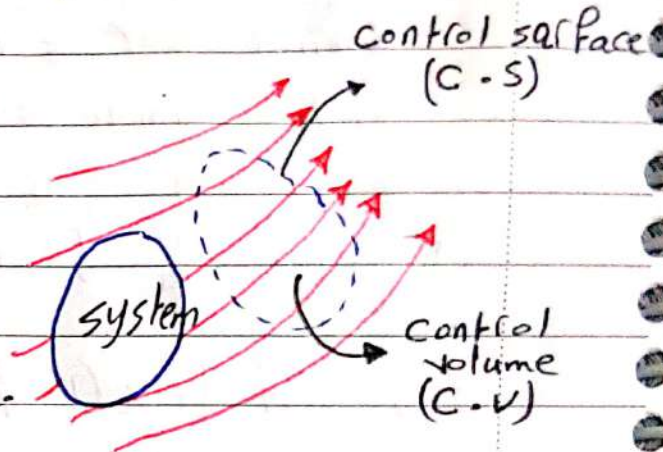 control sarface
(C.S)
system
control
volume
(C.V)